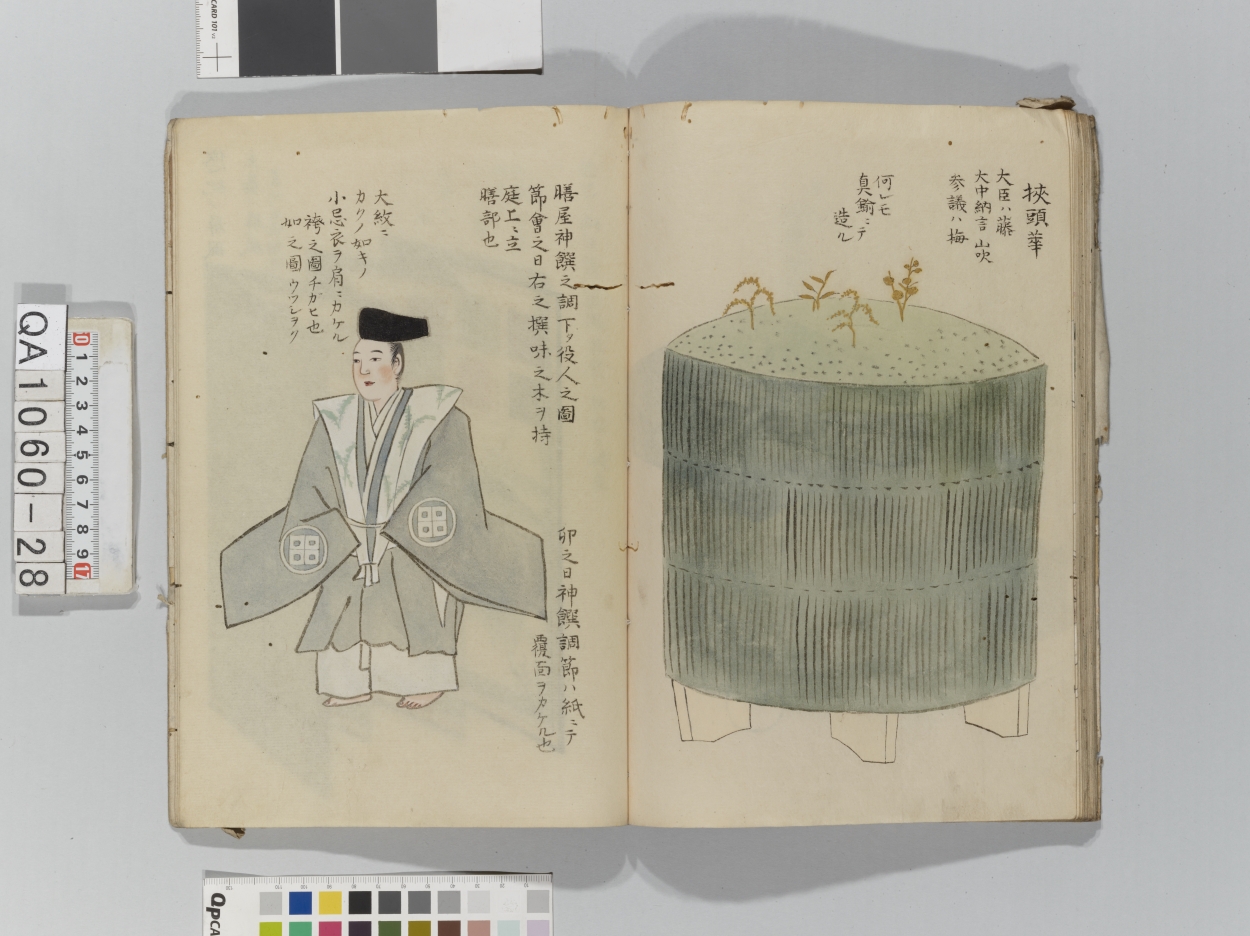 挾頭華
大臣ハ藤
大中納言 山吹
参議ハ梅
何レモ
真鍮ニテ
造ル
膳屋神饌之調下ノ役人之圖
節會之日右之撰味之木ヲ持
庭上ニ立
膳部也
卯之日神饌調節ハ紙ニテ
覆面ヲカケル也
大紋ニ
カクノ如キノ
小忌衣ヲ肩ニカケル
袴之圖チガヒ也
如之圖ウツシヲク
QA1060-28
10 1 2 3 4 5 6 7 8 9 17
QPCARD 101 v2
QPCA